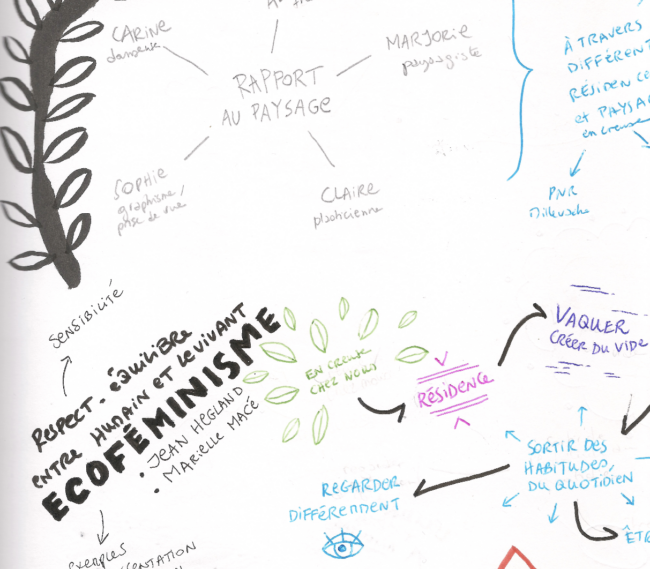 CARINE
danseuse
MARJORIE
paysagiste
RAPPORT
AU PAYSAGE
SOPHIE
graphisme/
prise de vue
CLAIRE
plasticienne
À TRAVERS
DIFFÉRENT
RÉSIDENCE
et PAYSA
en creuse
PNR
Millevache
SENSIBILITÉ
RESPECT - ÉQUILIBRE
ENTRE HUMAIN ET LE VIVANT
ECOFÉMINISME
• JEAN HEGLAND
• MARIELLE MACÉ
exemples
EN CREUSE
CHEZ NOUS
RÉSIDENCE
VAQUER
CRÉER DU VIDE
SORTIR DES
HABITUDES,
DU QUOTIDIEN
REGARDER
DIFFÉREMMENT
ÊTR